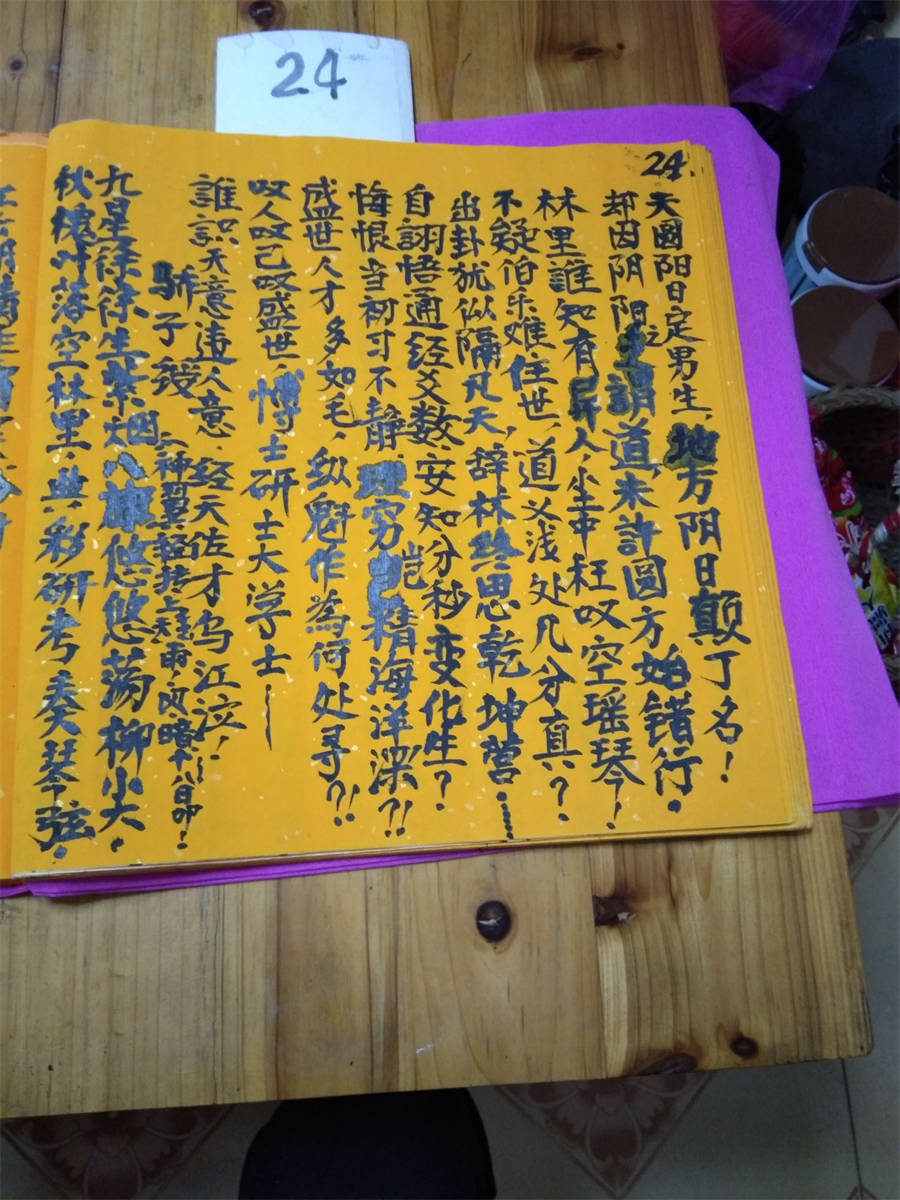 24
24.
天圆阳日定男生,地方阴日颠丁名!
却因阴阳之谓道,未許圆方始错行。
林里誰知有异人,尘中枉叹空瑶琴!
不疑伯乐难住世,道义浅处几分真?
出卦就似隔凡天,辞林终思乾坤营……
自詡悟通经爻数,安知分秒变化生?
悔恨当初寸不静,理穷岂精海洋深?!!
盛世人才多如毛,纵魁作為何处寻?!!
叹人叹己叹盛世,博士研士大学士——
誰識天意违人意,经天佐才乌江泣!
骄子发
九星徐徐生紫烟,八旗悠悠荡柳尖。
秋槐叶落空林里,典彩研考奏琴弦。